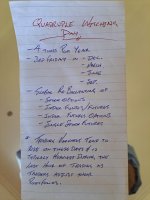 QUADRUPLE WITCHING
DAY
- 4 TIMES PER YEAR
- 3RD FRIDAY IN - DEC.
- MARCH
- JUNE
- SEP.
- STOCK OPTIONS
- INDEX FUTURES
- INDEX FUTURES OPTIONS
- SINGLE STOCK FUTURES
- TRADING VOLUMES TEND TO
RISE ON THESE DAYS & IS
TYPICALLY HEAVIEST DURING THE
LAST HOUR OF TRADING AS
TRADERS ADJUST THEIR
PORTFOLIOS.